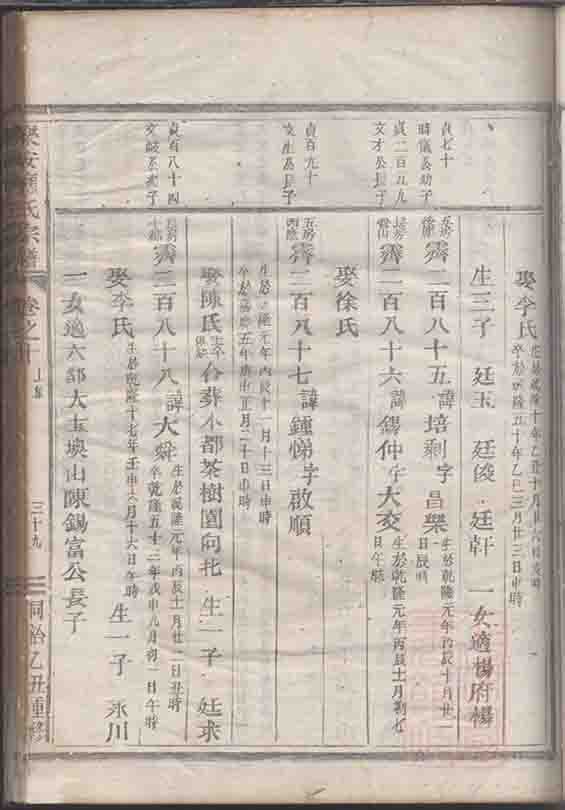 娶李氏
生於乾隆十年乙丑十月廿六日亥時
卒於乾隆五十年乙巳三月廿三日申時
生三子 廷玉 廷俊 廷軒 一女適楊府楊
貞七十
時儀公幼子
霽二百八十五諱培剩字昌樂
生於乾隆元年丙辰十月廿二
日辰時
貞二百九九
文才公長子
長房
霽二百八十六諱儁仲字大交
生於乾隆元年丙辰十月初七
日午時
娶徐氏
貞百九十
文生公長子
五房
霽二百八十七諱鍾悌字啟順
生於乾隆元年丙辰十一月十三日申時
卒於嘉慶五年庚申正月二十日申時
娶陳氏
合葬小都茶樹園向北 生一子 廷求
貞百八十四
文岐公次子
長房
霽二百八十八諱大舜
生於乾隆元年丙辰十一月廿二日丑時
卒乾隆五十三年戊申八月初一日午時
娶李氏
生於乾隆十七年壬申六月十六日午時
生一子 永川
一女適六都大玉墺山陳錫富公長子
樂安 氏宗譜
卷之
上集
三十九
同治乙丑重修